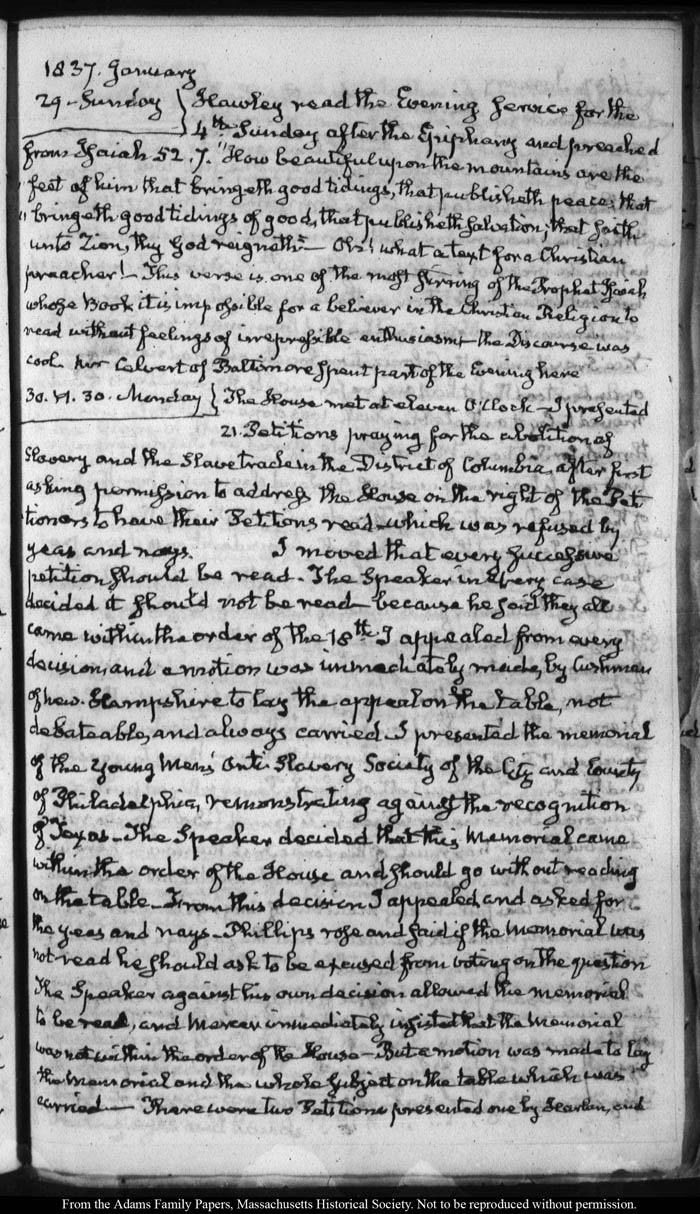 1837. January
29 - Sunday } Hawley read the Evening Service for the
4th Sunday after the Epiphany and preached
from Isaiah 52. 7. "How beautiful upon the mountains are the
feet of him that bringeth good tidings, that publisheth peace; that
"bringeth good tidings of good, that publisheth salvation; that saith
unto Zion, thy God reigneth" - Oh! what a text for a Christian
preacher! - This verse is one of the most stirring of the Prophet Isaiah
whose Book it is impossible for a believer in the Christian Religion to
read without feelings of irrepressible enthusiasm - the Discourse was
cool. Mr Calvert of Baltimore spent part of the Evening here
30. VI. 30. Monday } The House met at eleven O'Clock - I presented
21. Petitions praying for the abolition of
Slavery and the Slave trade in the District of Columbia, after first
asking permission to address the House on the right of the Peti
tioners to have their Petitions read - which was refused by
yeas and nays. I moved that every successive
petition should be read - The Speaker in every case
decided it should not be read - because he said they all
came within the order of the 18th. I appealed from every
decision, and a motion was immediately made, by Cushman
of New-Hampshire to lay the appeal on the table, not
debateable, and always carried. I presented the memorial
of the Young Men's Anti-Slavery Society of the City and County
of Philadelphia, remonstrating against the recognition
of Texas - The Speaker decided that this Memorial came
within the order of the House and should go without reading
on the table - From this decision I appealed, and asked for
the yeas and nays - Phillips rose and said if the Memorial was
not read he should ask to be excused from voting on the question
The Speaker against his own decision allowed the memorial
to be read, and Mercer immediately insisted that the Memorial
was not within the order of the House - But a motion was made to lay
the memorial and the whole subject on the table which was
carried - There were two Petitions presented one by Harlan, and
From the Adams Family Papers, Massachusetts Historical Society. Not to be reproduced without permission.